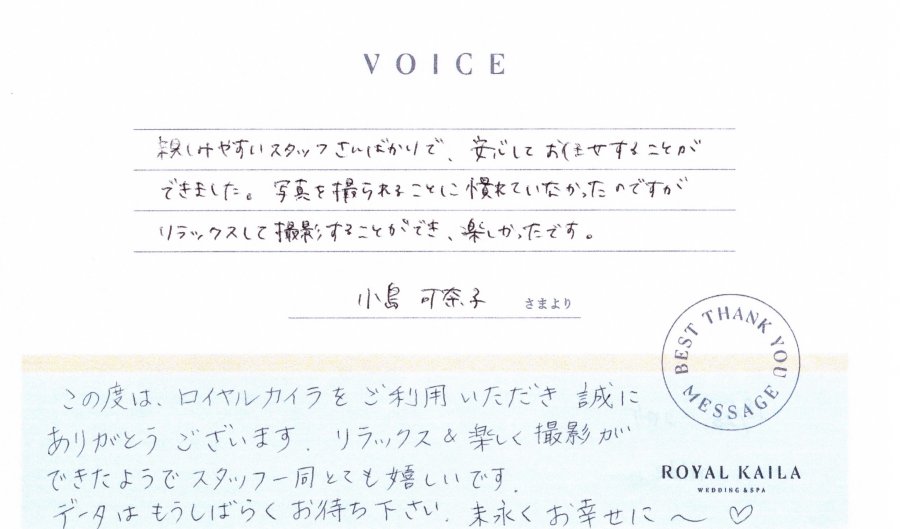 VOICE
親しみやすいスタッフさんばかりで、安心してお任せすることが
できました。写真を撮られることに慣れていなかったのですが
リラックスして撮影することができ、楽しかったです。
小島 可奈子 さまより
BEST THANK YOU MESSAGE
この度は、ロイヤルカイラをご利用いただき 誠に
ありがとうございます. リラックス & 楽しく撮影が
できたようでスタッフ一同とても嬉しいです.
データはもうしばらくお待ち下さい. 末永くお幸せに〜♡
ROYAL KAILA
WEDDING & SPA